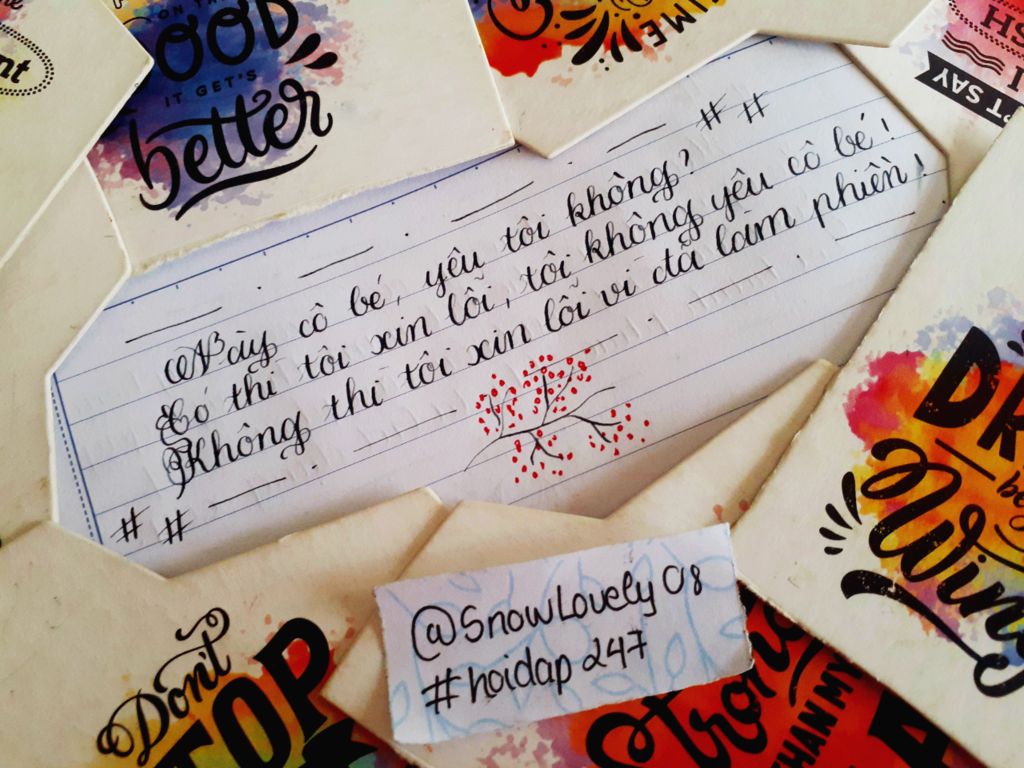 ON THE
OOD
IT GET'S
better
TIME
SH
I
PT SAY
nt
# #
Này cô bé, yêu tôi không?
Có thì tôi xin lỗi, tôi không yêu cô bé!
Không thì tôi xin lỗi vì đã làm phiền!
# #
@SnowLovely08
#hoidap247
Don't
TOP
trong
THAN MY
A
DR
be
Wine